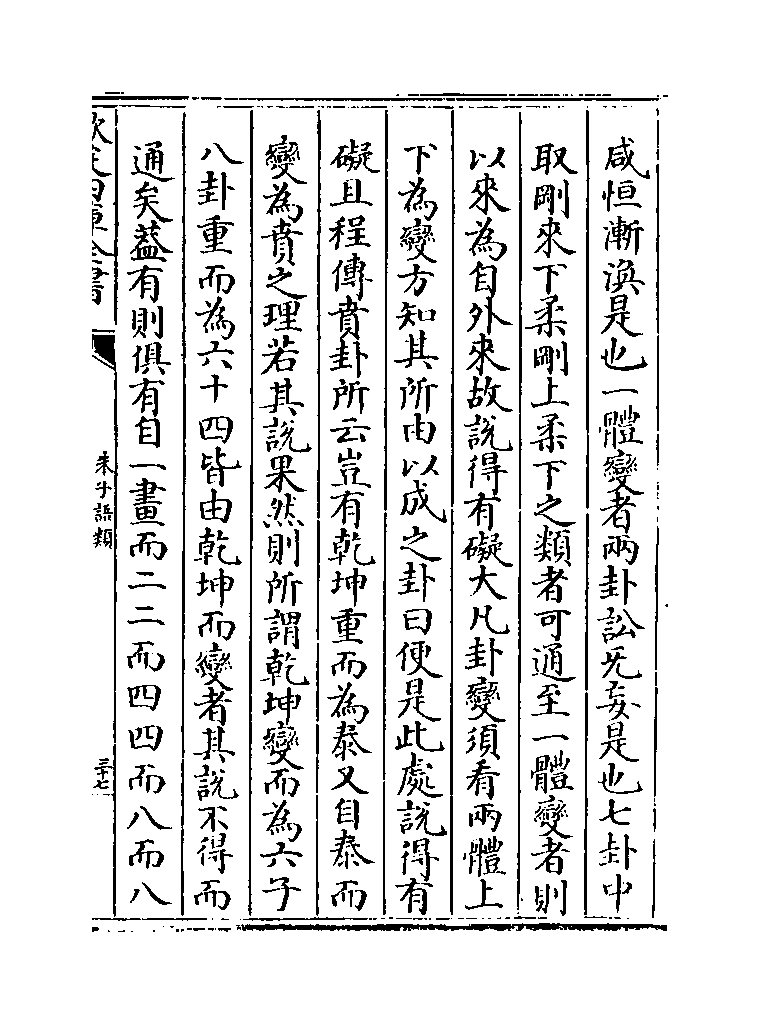 咸恒漸渙是也一體變者兩卦訟无妄是也七卦中
取剛來下柔剛上柔下之類者可通至一體變者則
以來為自外來故說得有礙大凡卦變須看兩體上
下為變方知其所由以成之卦曰便是此處說得有
礙且程傳賁卦所云豈有乾坤重而為泰又自泰而
變為賁之理若其說果然則所謂乾坤變而為六子
八卦重而為六十四皆由乾坤而變者其說不得而
通矣葢有則俱有自一畫而二二而四四而八而八
欽定四庫全書
朱子語類
三十七